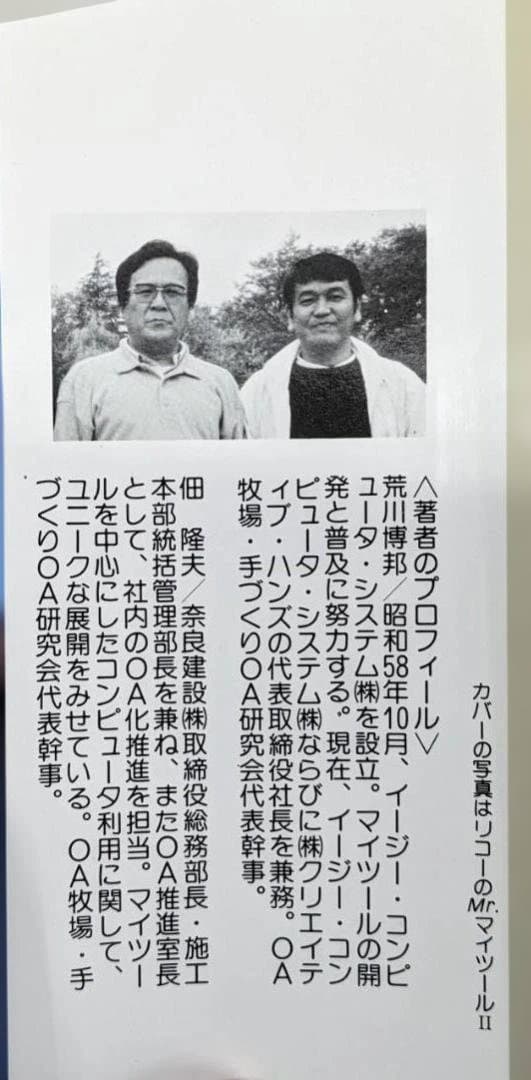 カバーの写真はリコーのMr.マイツールⅡ
〈著者のプロフィール〉
荒川博邦／昭和58年10月、イージー・コンピ
ュータ・システム㈱を設立。マイツールの開
発と普及に努力する。現在、イージー・コン
ピュータ・システム㈱ならびに㈱クリエイテ
ィブ・ハンズの代表取締役社長を兼務。ＯＡ
牧場・手づくりＯＡ研究会代表幹事。
佃　隆夫／奈良建設㈱取締役総務部長・施工
本部統括管理部長を兼ね、またＯＡ推進室長
として、社内のＯＡ化推進を担当。マイツー
ルを中心にしたコンピュータ利用に関して、
ユニークな展開をみせている。ＯＡ牧場・手
づくりＯＡ研究会代表幹事。